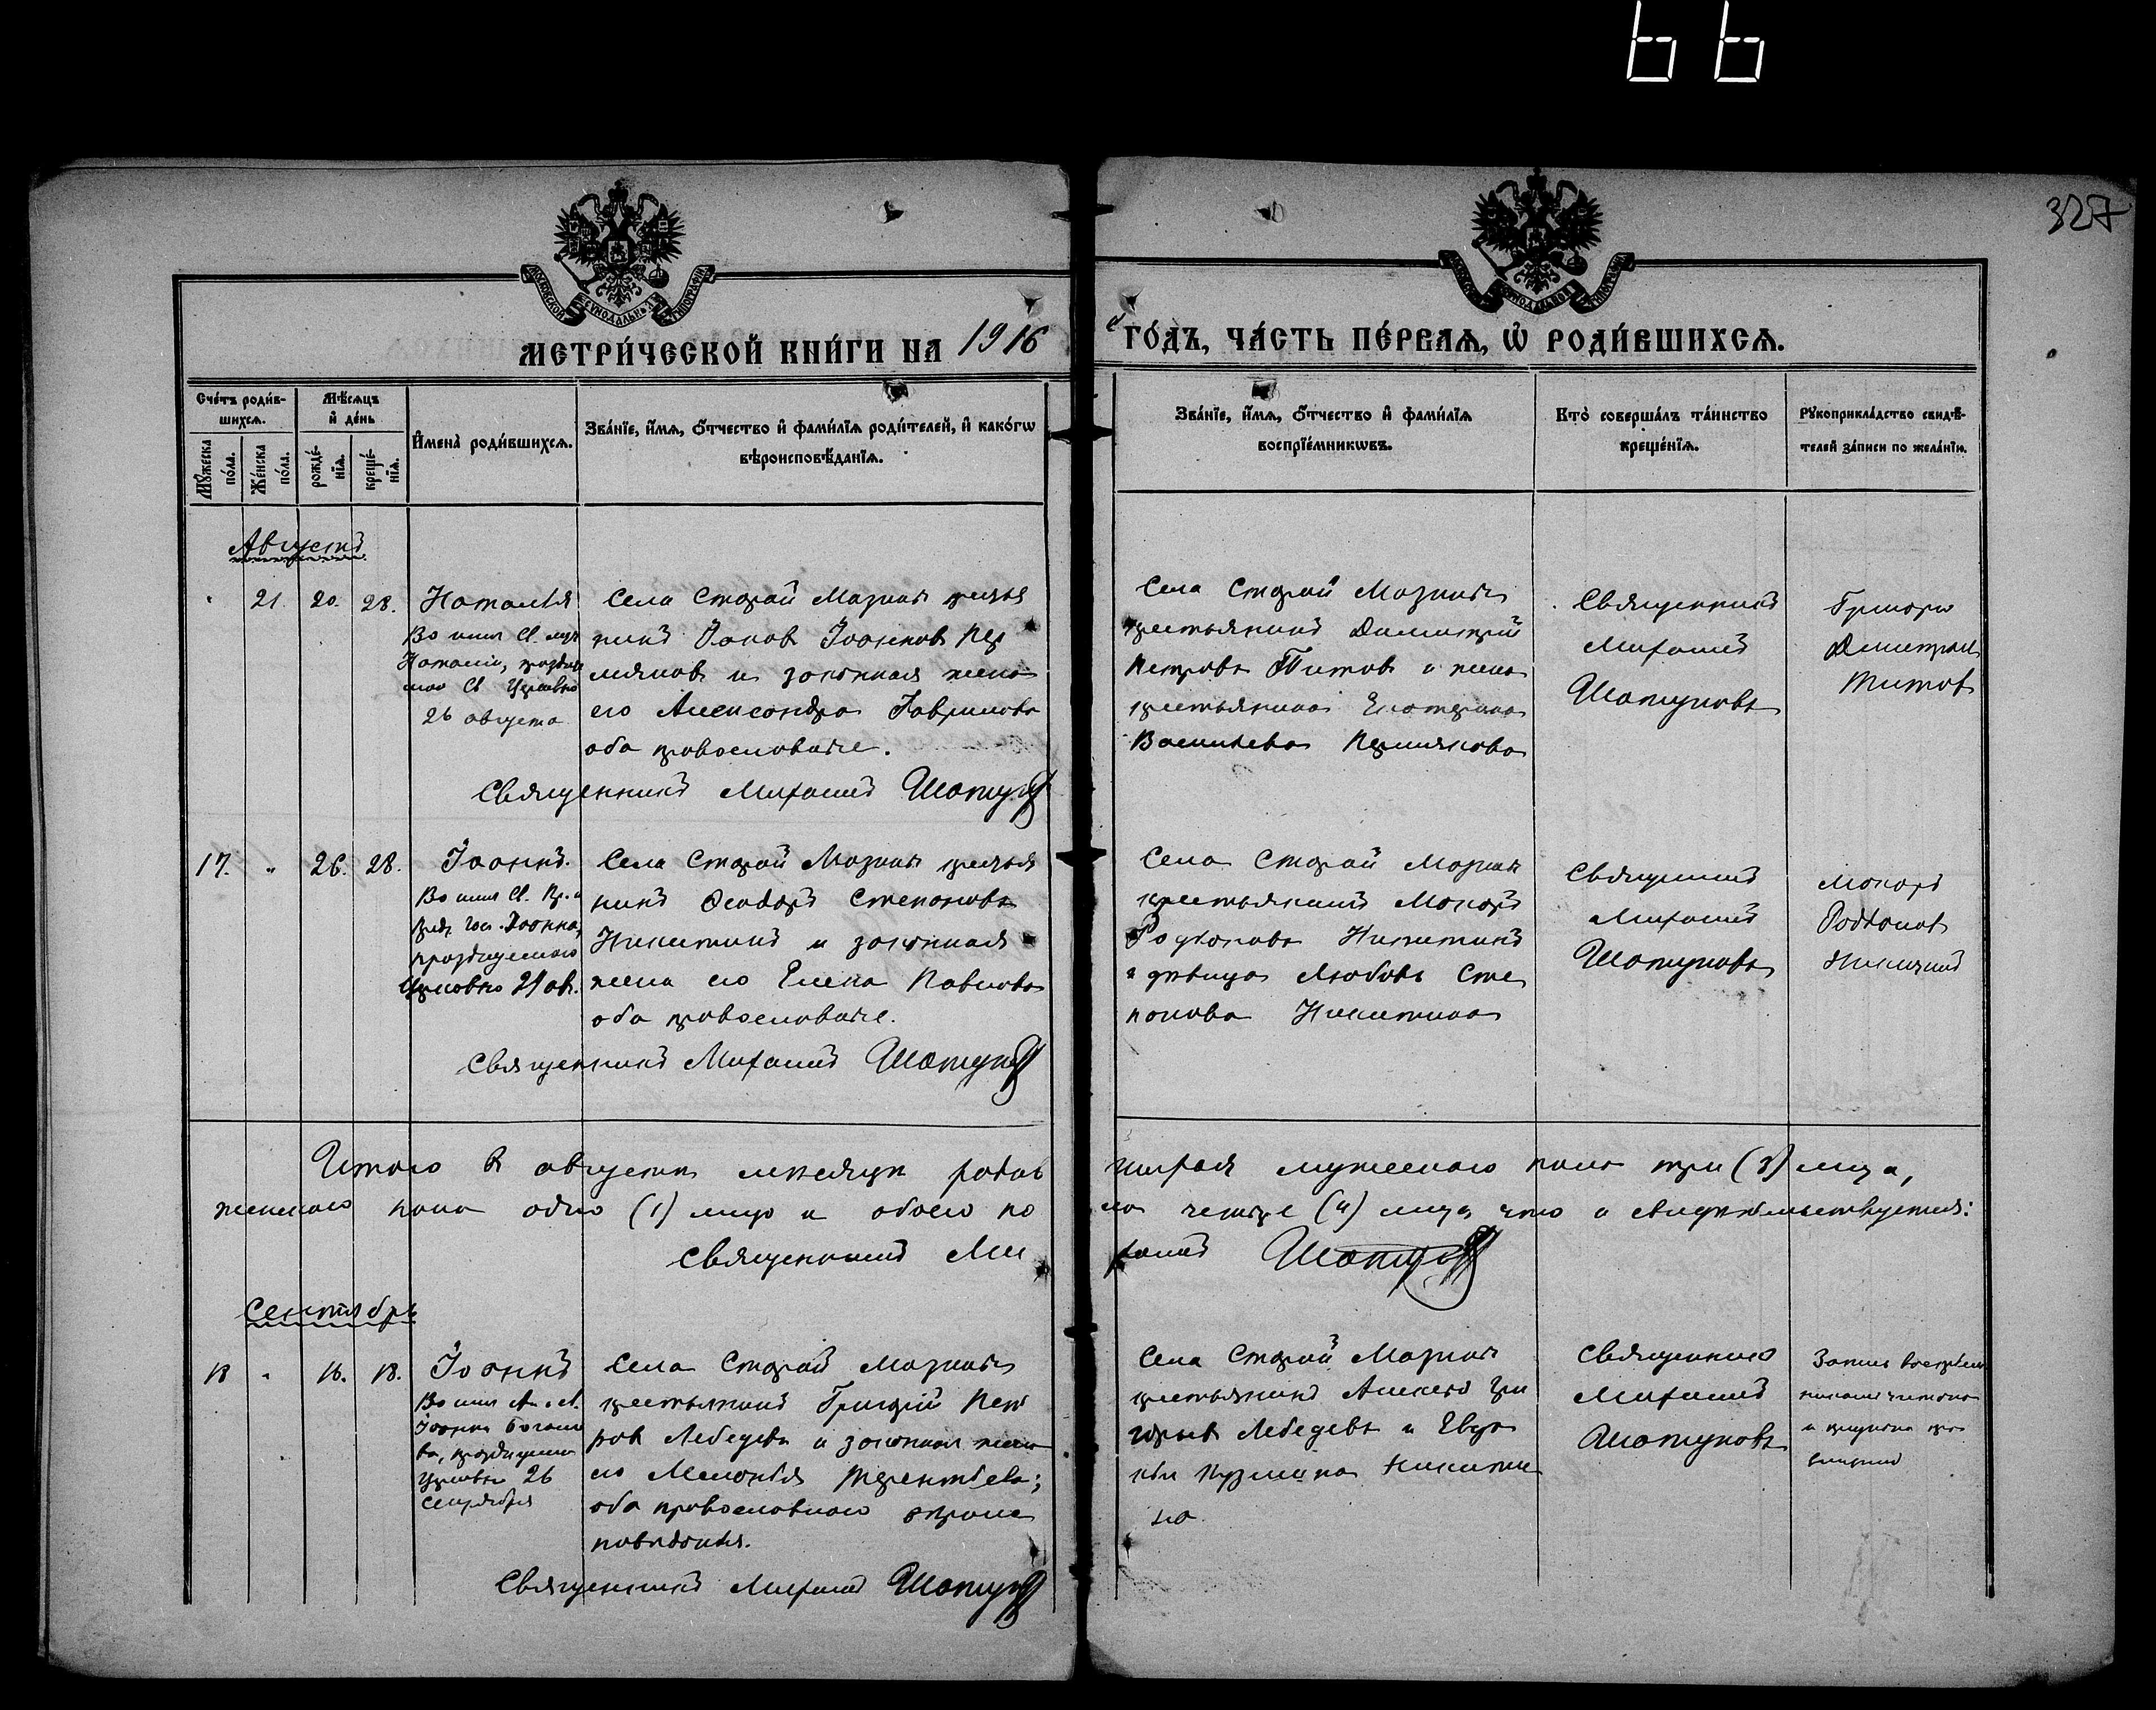 66
327
МОСКОВСКОЙ СѴНОДАЛЬНОЙ ТИПОГРАФІИ
МОСКОВСКОЙ СѴНОДАЛЬНОЙ ТИПОГРАФІИ
МЕТРИ́ЧЕСКОЙ КНИ́ГИ НА 1916
й ГО́ДЪ, ЧА́СТЬ ПЕ́РВАѦ, Ѡ РОДИ́ВШИХСѦ.
Сче́тъ роди́в-
шихсѧ.
Мꙋ́жеска по́ла.
Же́нска по́ла.
Мѣ́сѧцъ
и҆ де́нь
рожде́-нїѧ.
креще́-нїѧ.
И҆мена̀ роди́вшихсѧ.
Зва́нїе, и҆́мѧ, о҆́тчество и҆ фами́лїѧ роди́телей, и҆ како́гѡ
вѣроисповѣ́данїѧ.
Зва́нїе, и҆́мѧ, о҆́тчество и҆ фами́лїѧ
воспрїе́мникѡвъ.
Кто̀ соверша́лъ та́инство
креще́нїѧ.
Рꙋкоприкла́дство свидѣ́-
телей за́писи по жела́нїю.
Августъ
21. 20. 28.
Наталія
Во имя Св. муч
Наталіи, праздну
Св Церковію
26 августа
Села Старой Мазины крестья
нинъ Іаков Іоаннов Пер
мяков и законная жена
его Александра Гаврилова
оба православные.
Священникъ Михаилъ Шатунов
Села Старой Мазины
крестьянинъ Димитрій
Петровъ Титов и жена
крестьянина Екатерина
Васильева Пермякова
Священникъ
Михаилъ
Шатуновъ
Григорій
Димитріев
Титов
17. " 26. 28.
Іоаннъ.
Во имя Св. Пр. и
Пред. Гос. Іоанна,
празднуемаго
Церковію 29 ав.
Села Старой Мазины крестья
нинъ Ѳеодоръ Степановъ
Никитинъ и законная
жена его Елена Павлова
оба православные.
Священникъ Михаилъ Шатунов
Села Старой Мазины
крестьянинъ Макаръ
Родіоновъ Никитинъ
и дѣвица Любовь Сте
панова Никитина
Священникъ
Михаилъ
Шатуновъ
Макаръ
Родіонов
Никитинъ
Итого в августѣ мѣсяцѣ родив
шихся мужескаго пола три (3) лица,
женскаго пола одно (1) лицо и обоего по
ла четыре (4) лица, что и свидѣтельствуется:
Священникъ Ми
хаилъ Шатунов
Сентябрь
18 " 16. 18.
Іоаннъ
Во имя Ап. и Ев.
Іоанна Богосло
ва, празднуемаго
Церковію 26
сентября
Села Старой Мазины
крестьянинъ Григорій Пет
ров Лебедевъ и законная жена
его Меланія Терентьева;
оба православнаго вѣроис
повѣданія.
Священникъ Михаилъ Шатунов
Села Старой Мазины
крестьянинъ Алексѣй Гри
горьев Лебедевъ и Евдо
кія Кузмина Никити
на.
Священникъ
Михаилъ
Шатуновъ
Запись воспріем
никами читана
и